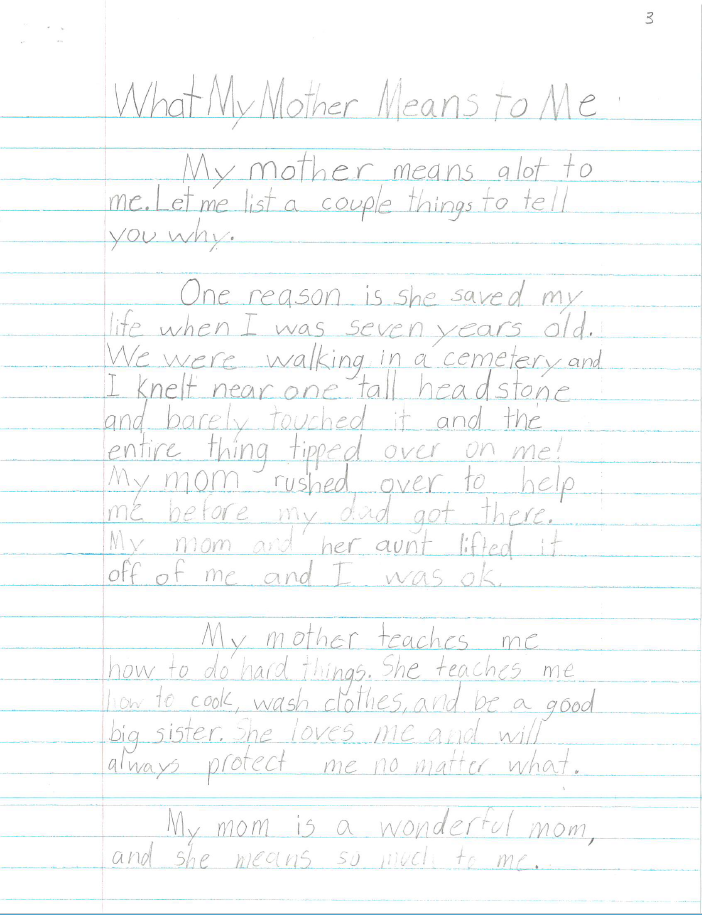 3
What My Mother Means to Me
My mother means alot to
me. Let me list a couple things to tell
you why.
One reason is she saved my
life when I was seven years old.
We were walking in a cemetery and
I knelt near one tall headstone
and barely touched it and the
entire thing tipped over on me!
My mom rushed over to help
me before my dad got there.
My mom and her aunt lifted it
off of me and I was ok.
My mother teaches me
how to do hard things. She teaches me
how to cook, wash clothes, and be a good
big sister. She loves me and will
always protect me no matter what.
My mom is a wonderful mom,
and she means so much to me.